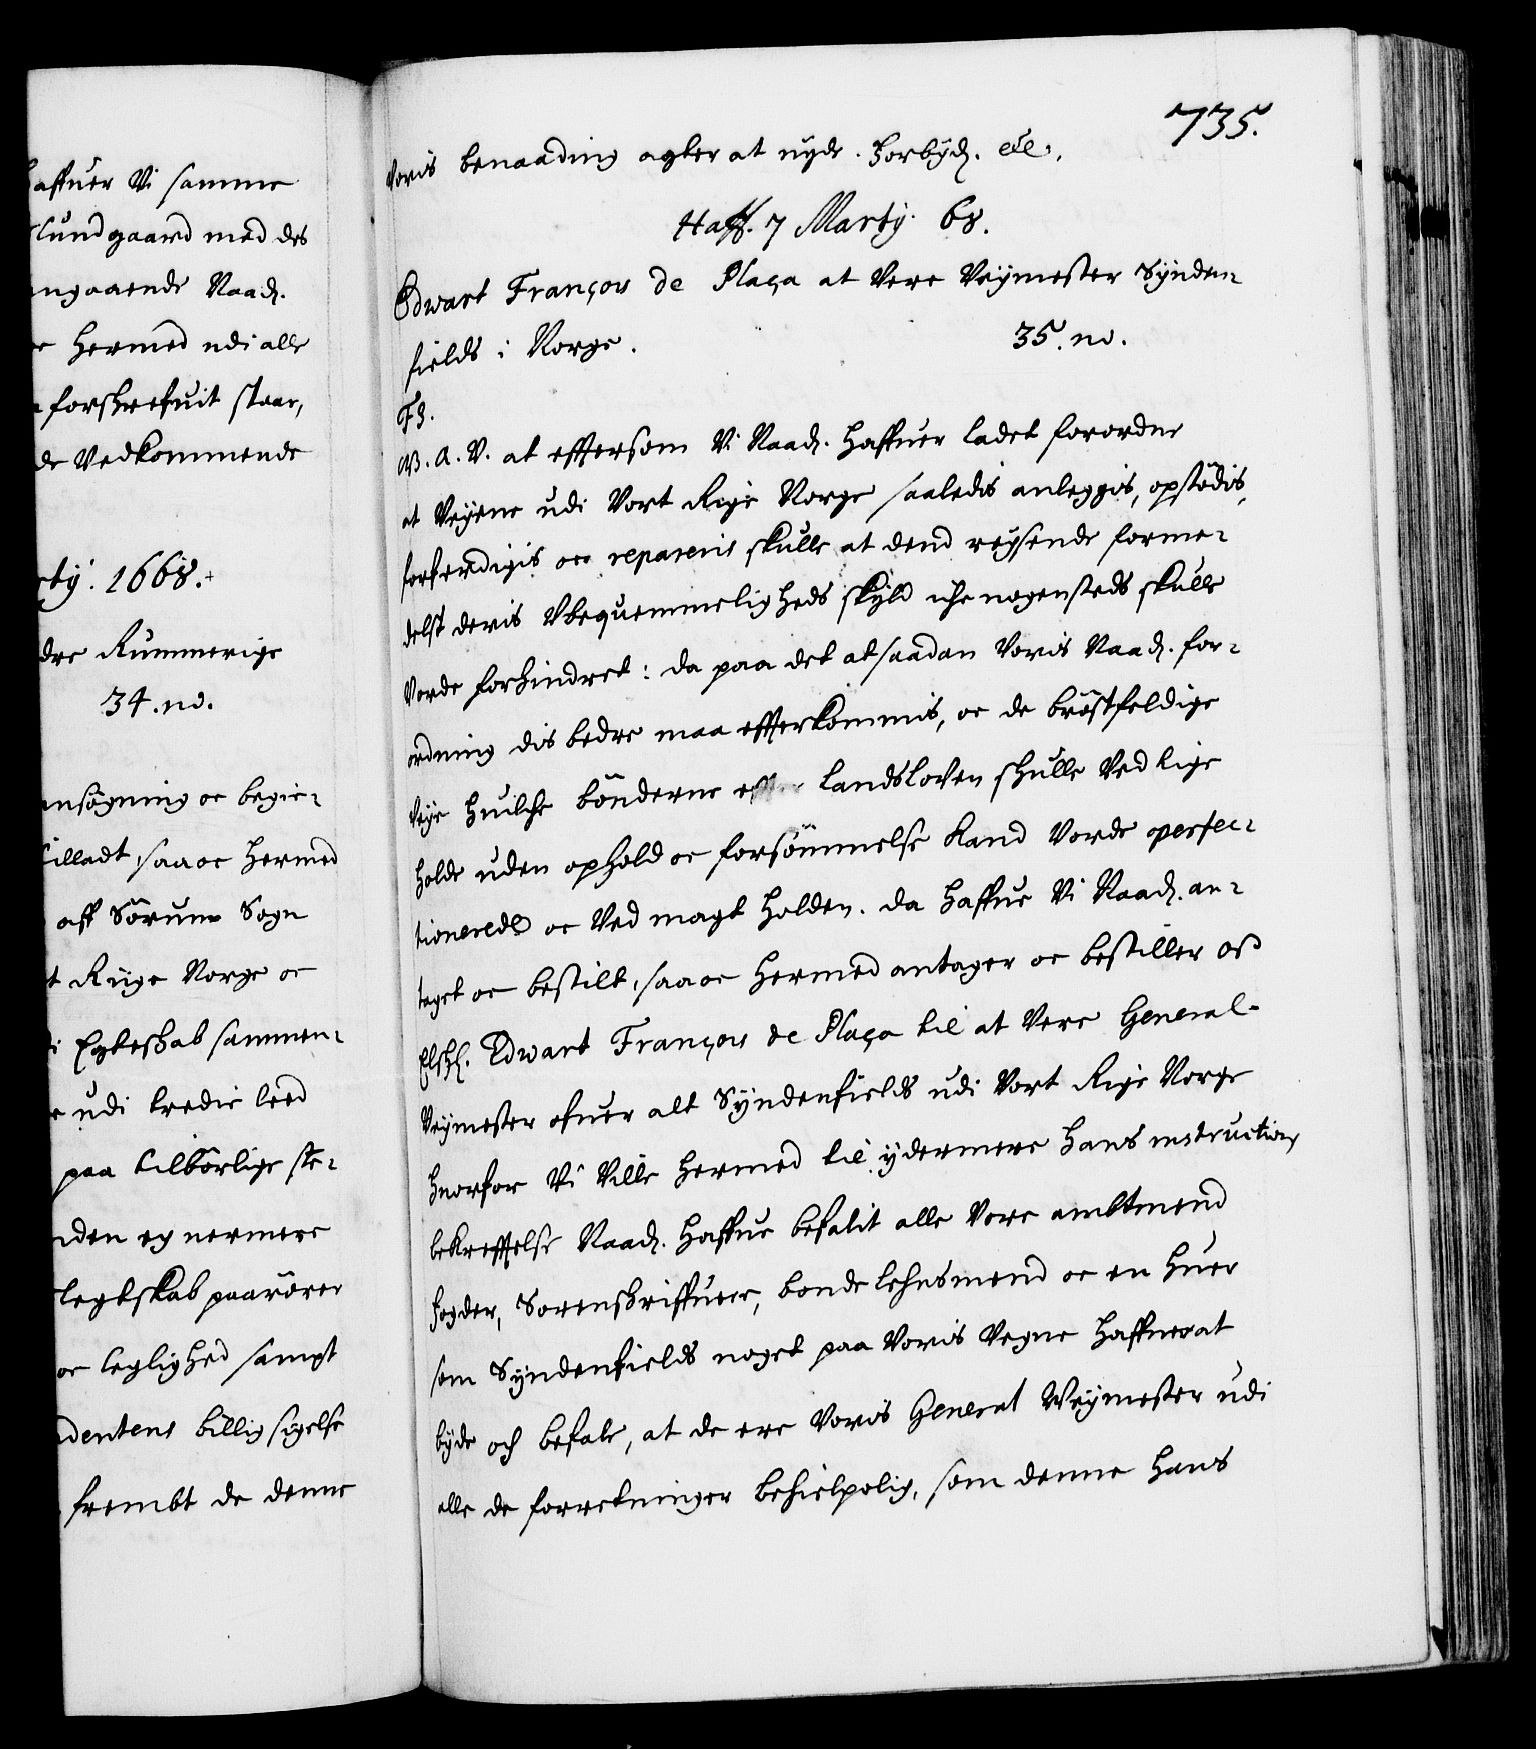 haffuer Vi samme
lundgaard med des
angaaende Naad.
hermed udi alle
forskrefuit staar,
de Vedkommende
rtij. 1668.
dre Rummerige
34. no.
ansögning oc begie-
tilladt, saa oc hermed
aff Sörum Sogn
t Rige Norge oc
i Egteskab sammen-
udi tredie leed
paa tilbörlige ste-
nden eg nermere
legtskab paarörer
oc leglighed sampt
dentens billig sigelse
frembt de denne
735.
Voris benaading agter at nyde. Forbyd. etc.
Haff. 7 Martij. 68.
Edwart François de Plaça at Vere Veymester Synden-
fields i Norge. 35. no.
F3.
W. A. V. at eftersom Vi Naad. haffuer ladet forordne
at Veyene udi Vort Rige Norge saaledis anleggis, opstödis,
forferdigis oc reparenis skulle at dend reysende forme-
delst deris Vbequemmeligheds skyld iche nogensteds skulle
Vorde forhindret: da paa det at saadan Voris Naad. for-
ordning dis bedre maa effterkommis, oc de bröstfeldige
Veye huilche bönderne effter Landsloven skulle Ved lige
holde uden ophold oc forsömmelse kand Vorde perfec-
tionerede oc Ved magt holden. da haffue Vi Naad. an-
taget oc bestilt, saa oc hermed antager oc bestiller oss
Elskl. Edwart François de Plaça til at Vere General-
Veymester ofuer alt Syndenfields udi Vort Rige Norge
huorfor Vi Ville hermed til ydermere hans instructions
bekrefftelse Naad. haffue befalit alle Vore ambtmend
fogder, Sorenskriffuere, bonde lehnsmend oc en huer
som Syndenfields noget paa Voris Vegne haffuer at
byde och befale, at de ere Voris General Weymester udi
alle de forretninger behielpelig, som denne hans